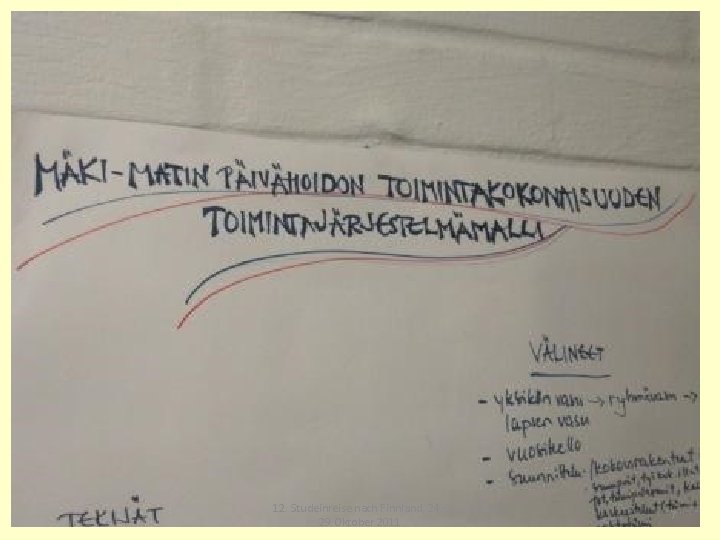 MÄKI-MATIN PÄIVÄHOIDON TOIMINTAKOKONAISUUDEN
TOIMINTAJÄRJESTELMÄMALLI
VÄLINEET
- yksikön vasu -> ryhmävasu ->
lapsen vasu
- vuosikello
- suunnittelu-/kokousrakenteet
TEKIJÄT
12. Studeinreise nach Finnland, 24.-
29.Oktober 2011